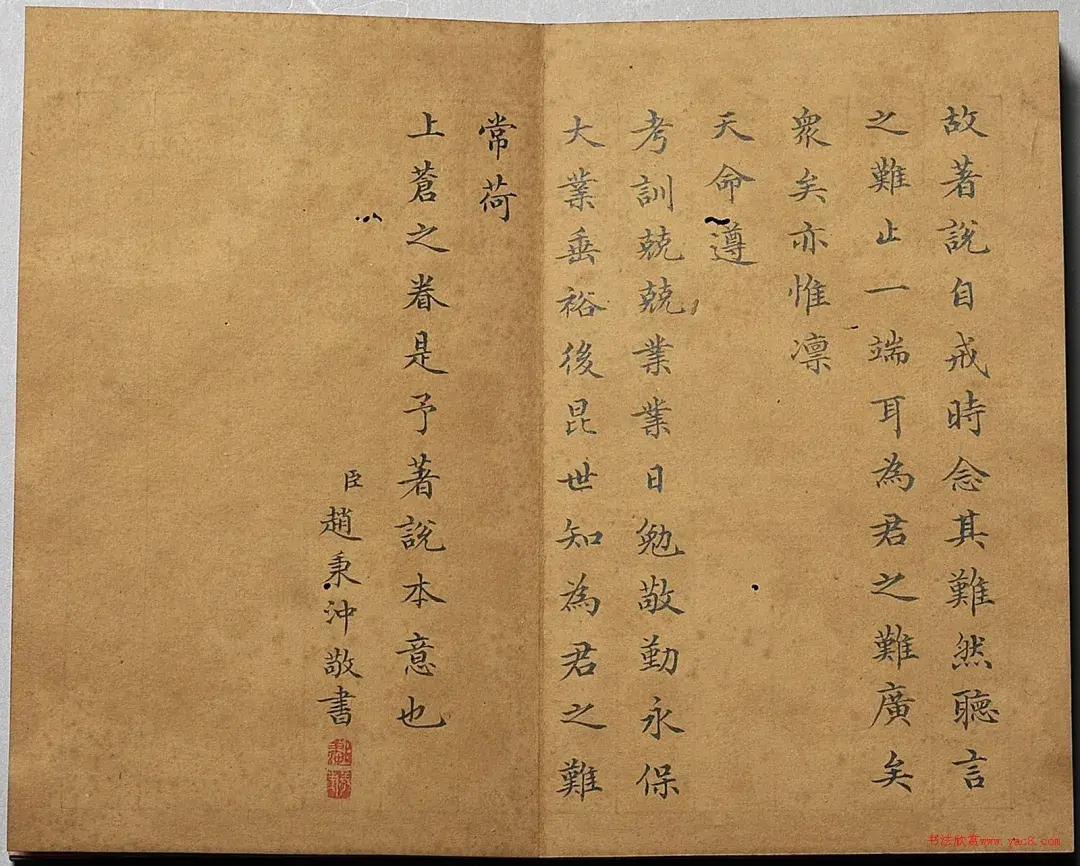 故著說自戒時念其難然聽言
之難止一端耳為君之難廣矣
衆矣亦惟凛
天命遵
考訓兢兢業業日勉敬勤永保
大業垂裕後昆世知為君之難
常荷
上蒼之眷是予著說本意也
臣趙秉沖敬書
书法欣赏www.yac8.com